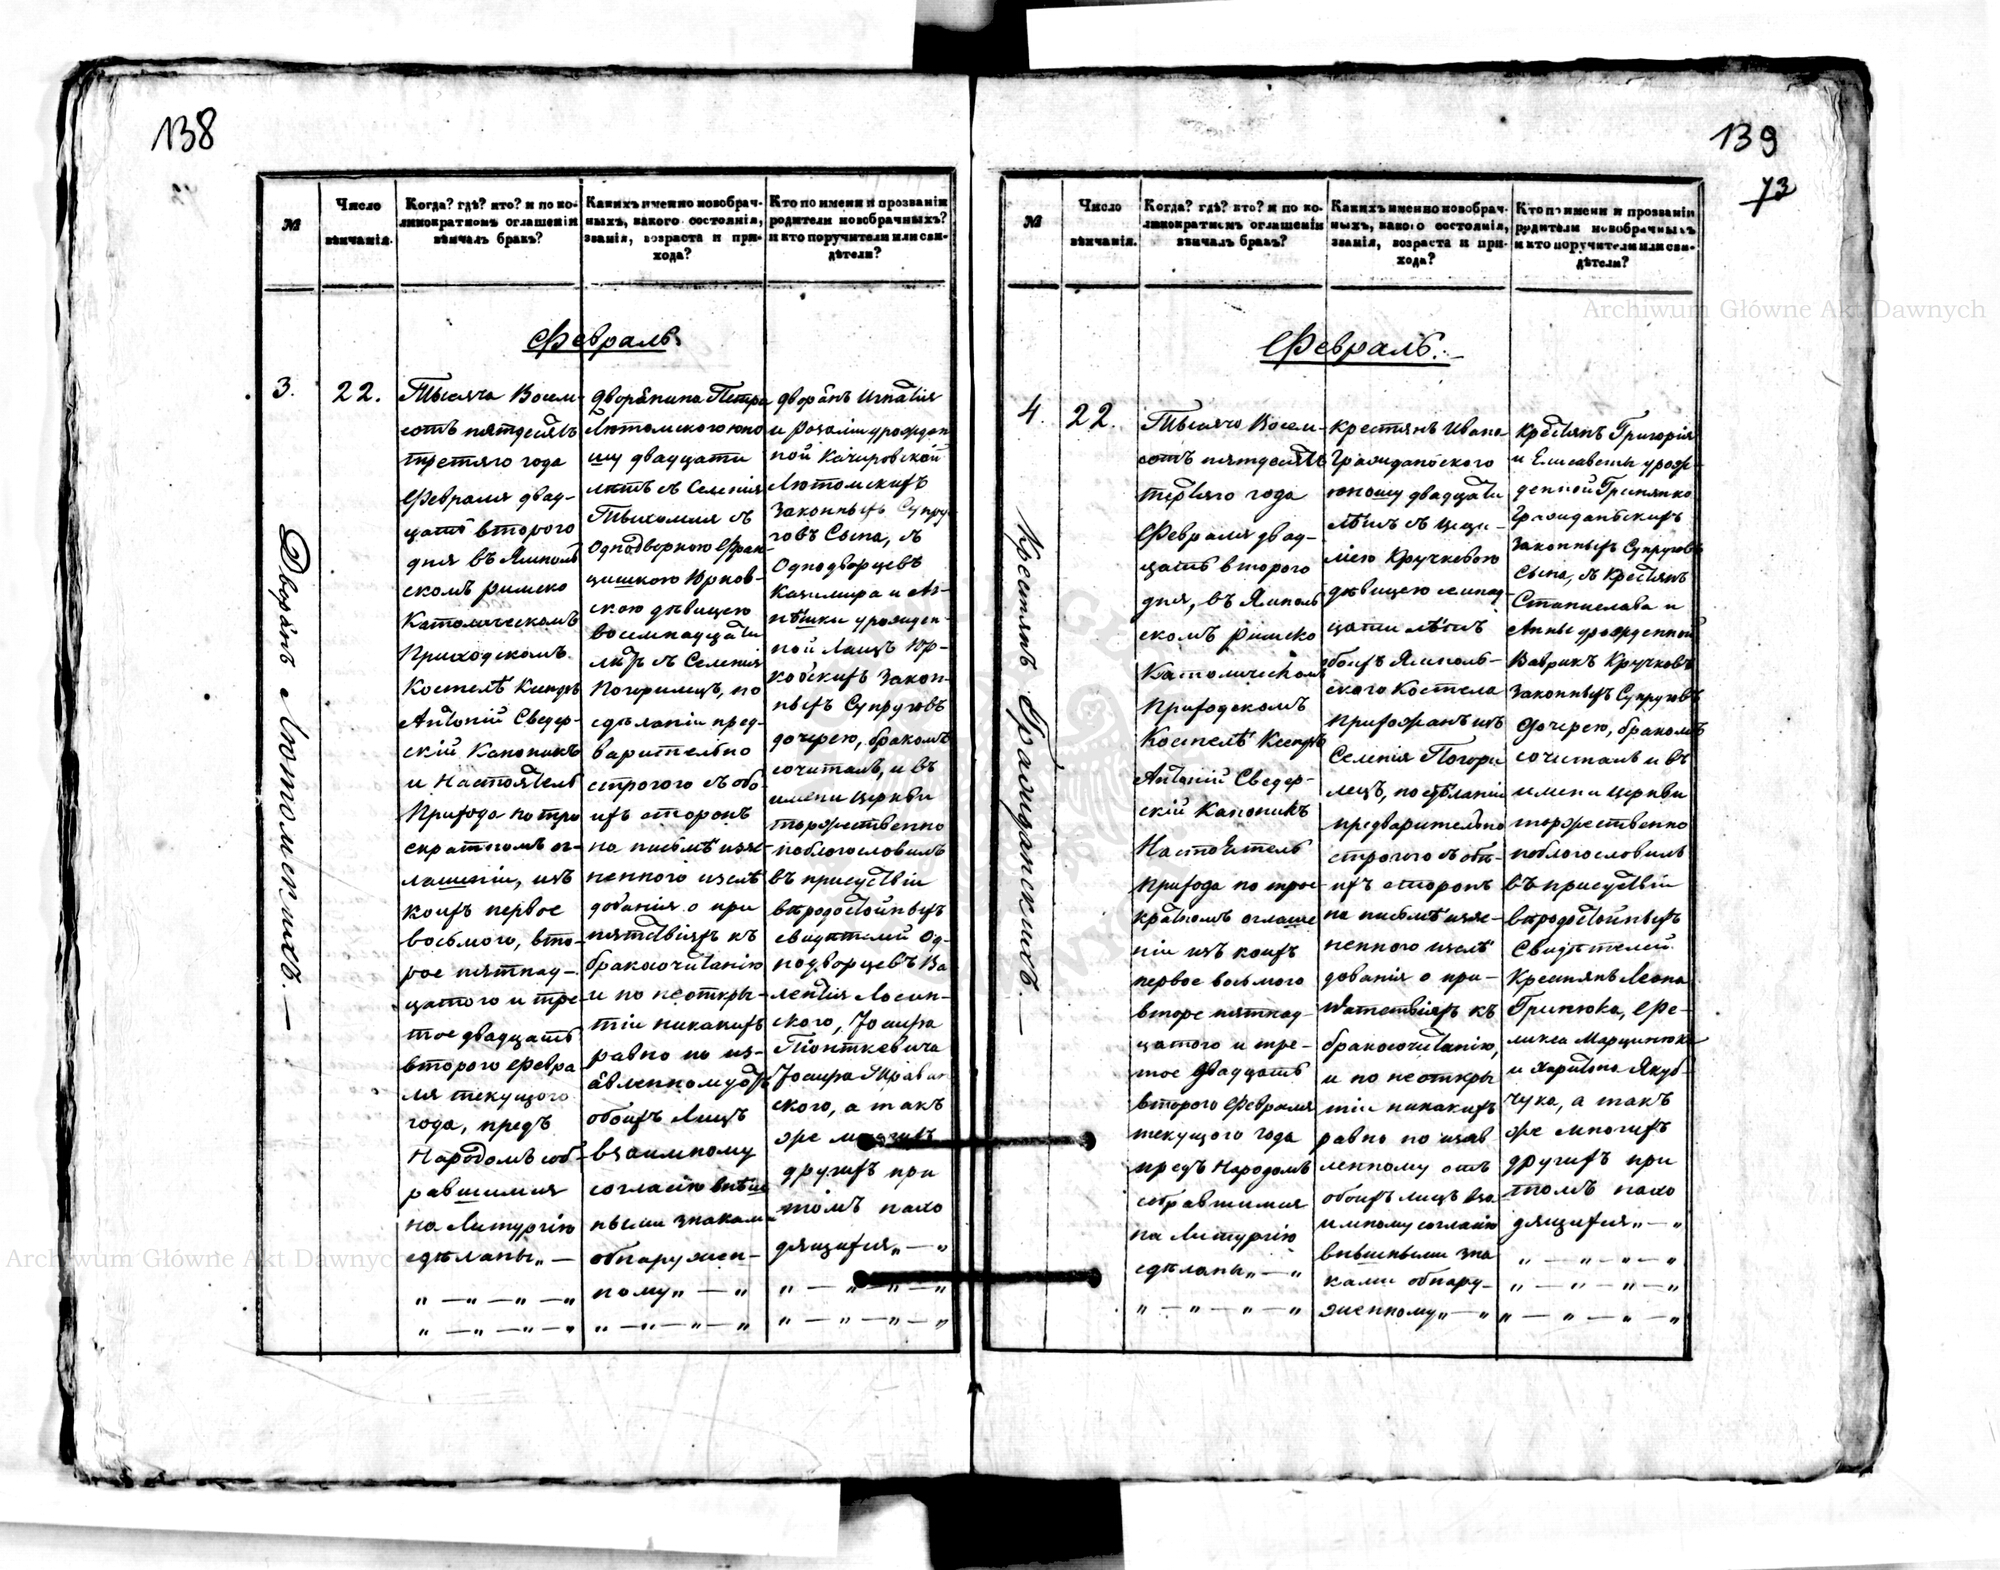 138
№
Число
вѣнчанія.
Когда? гдѣ? кто? и по ко-
ликократномъ оглашеніи
вѣнчалъ бракъ?
Какихъ именно новобрач-
ныхъ, какого состоянія,
званія, возраста и при-
хода?
Кто по имени и прозванію
родители новобрачныхъ?
и кто поручители или сви-
дѣтели?
Февраль.
3.
22.
Дворянъ Лютомскихъ.—
Тысяча Восем-
сотъ пятдесятъ
третяго года
Февраля двад-
цать второго
дня въ Ямполь
скомъ римско
Католическомъ
Приходскомъ
Костелѣ Ксендзъ
Антоній Сведер-
скій Каноникъ
и Настоятель
Прихода по трое
кратномъ ог-
лашеніи, изъ
коихъ первое
восьмого, вто-
рое пятнад-
цатого и тре-
тое двадцать
второго Февра
ля текущого
года, предъ
Народомъ соб-
равшимся
на Литургію
сдѣланы„ —
„ — „ — „ — „
„ — „ — „ — „
Дворянина Петра
Лютомского юно
шу двадцати
лѣтъ съ Селенія
Тыхомля съ
Однодворкою Фран-
цишкою Юрков-
скою дѣвицею
восемнадцати
лѣтъ съ Селенія
Погорилецъ, по
сдѣланіи пред-
варительно
строгого съ обо-
ихъ сторонъ
на письмѣ изъя-
ненного изслѣ
дованія о при
пятствіяхъ къ
бракосочитанію
и по неоткры-
тіи никакихъ
равно по из-
явленному отъ
обоихъ Лицъ
взаимному
согласію внѣш
ными знаками
обнаружен-
ному„ — „
„ — „ — „ — „
дворянъ Игнатія
и Розаліи урожден
ной Качировской
Лютомскихъ
Законныхъ Супру
говъ Сына, съ
Однодворцевъ
Казимира и Аг-
нѣшки урожден-
ной Лащъ Юр-
ковскихъ Закон-
ныхъ Супруговъ
дочерею, бракомъ
сочиталъ, и въ
имени Церкви
торжественно
поблогословилъ
въ присутствіи
вѣродостойныхъ
свидѣтелей Од-
нодворцевъ Ва
лентія Лосин-
ского, Іосифа
Піонткевича
ского, а такъ
же многихъ
другихъ при
томъ нахо
дящихся„ — „
„ — „ — „ — „
„ — „ — „ — „
139
73
№
Число
вѣнчанія.
Когда? гдѣ? кто? и по ко-
ликократномъ оглашеніи
вѣнчалъ бракъ?
Какихъ именно новобрач-
ныхъ, какого состоянія,
званія, возраста и при-
хода?
Кто по имени и прозванію
родители новобрачныхъ
и кто поручители или сви-
дѣтели?
Февраль.
4.
22.
Крестянъ Граждансkихъ.—
Тысяча Восем-
сотъ пятдесятъ
третяго года
Февраля двад-
цать второго
дня, въ Ямполь
скомъ римско
Католическомъ
Приходскомъ
Костелѣ Ксендзъ
Антоній Сведер-
скій Каноникъ
Настоятель
Прихода по трое-
кратномъ оглаше
ніи изъ коихъ
первое восьмого
второе пятнад-
цатого и тре-
тое двадцать
второго Февраля
текущого года
предъ Народомъ
собравшимся
на Литургію
сдѣланы„ — „
„ — „ — „ — „
Крестянъ Ивана
Гражданского
юношу двадцати
лѣтъ съ Цеци-
ліею Кручковою
дѣвицею семнад-
цати лѣтъ
обоихъ Ямполь-
ского Костела
прихожанъ изъ
Селенія Погори
лецъ, по сдѣланіи
предварительно
строгого съ обо-
ихъ сторонъ
на письмѣ изъя-
ненного изслѣ
дованія о при-
пятствіяхъ къ
бракосочитанію,
и по неоткры
тіи никакихъ
равно по изяв-
ленному отъ
обоихъ лицъ вза
имному согласію
внѣшными зна
ками обнару-
женному„ — „
Крестянъ Григорія
и Елисаветы урож-
денной Гринянко
Гражданскихъ
Законныхъ Супруговъ
Сына, съ Крестянъ
Станислава и
Анны урожденной
Ваврикъ Кручковъ
Законныхъ Супруговъ
дочерею, бракомъ
сочиталъ и въ
имени Церкви
торжественно
поблогословилъ
въ присутствіи
вѣродостойныхъ
Свидѣтелей
Крестянъ Леона
Гринюка, Фе-
ликса Марцинюка
и Харитона Якуб-
чука, а такъ
же многихъ
другихъ при
томъ нахо
дящихся„ — „
„ — „ — „ — „
„ — „ — „ — „
„ — „ — „ — „
Archiwum Główne Akt Dawnych
Archiwum Główne Akt Dawnych